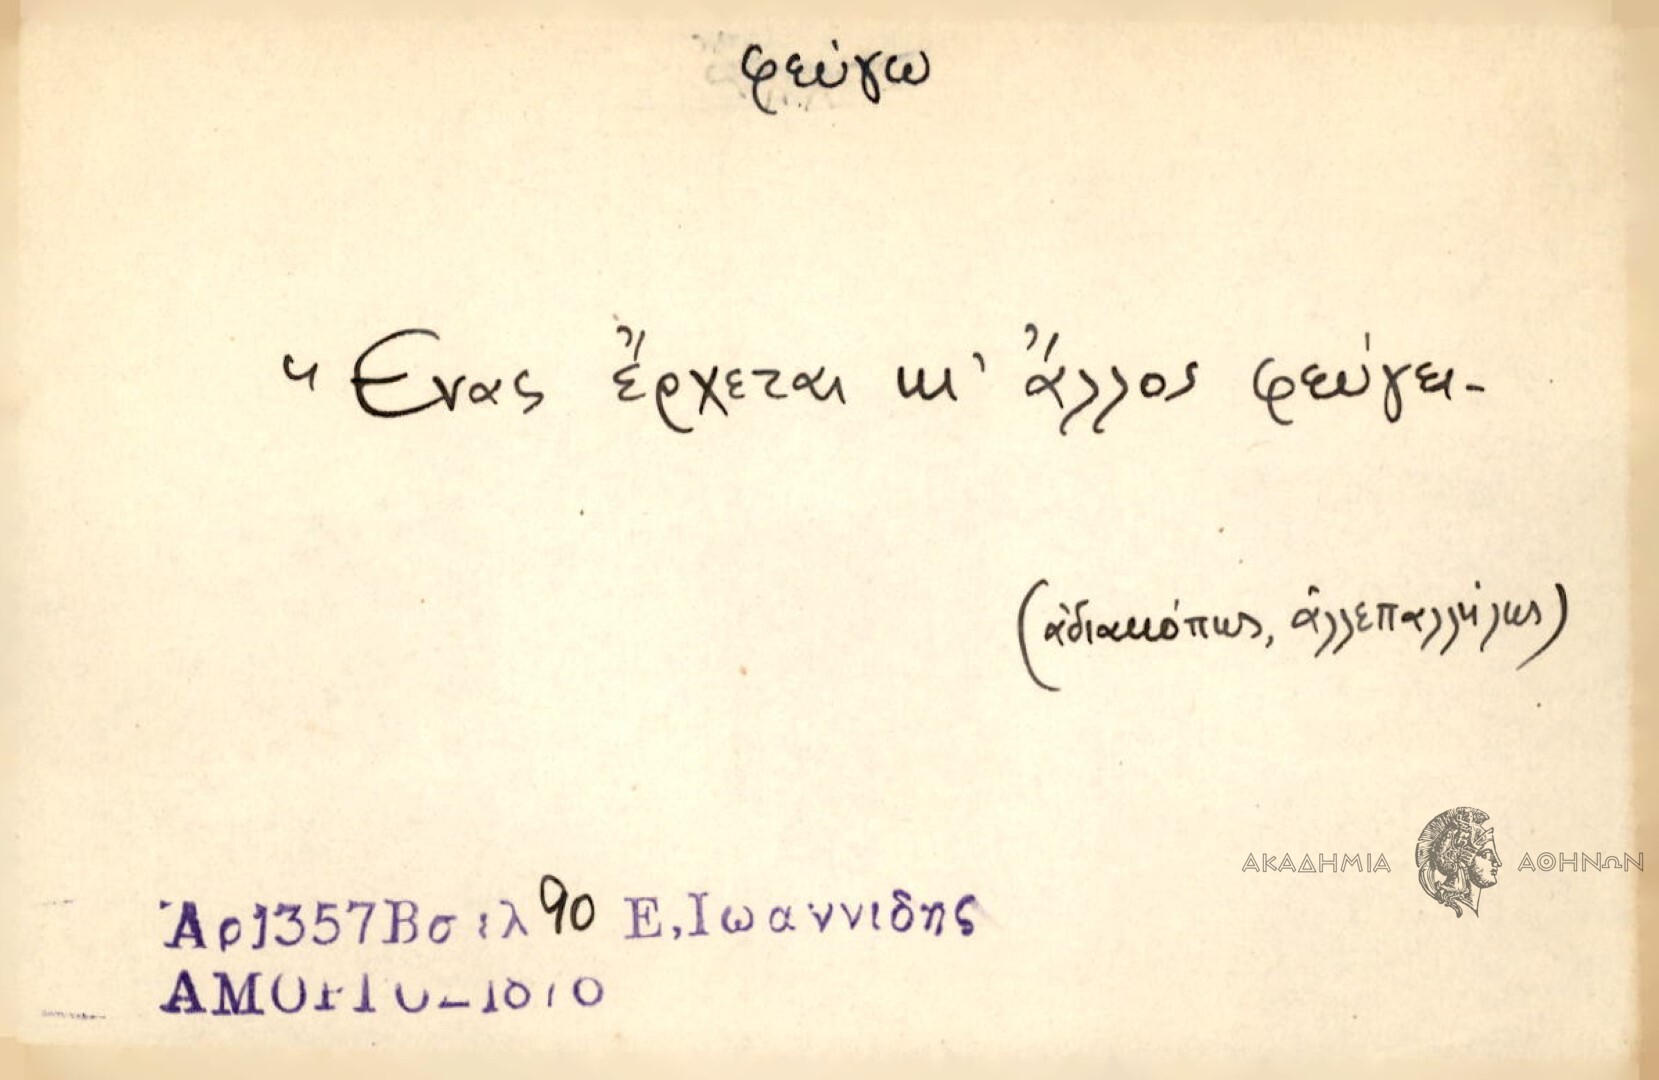 φεύγω
"Ενας ἔρχεται κι' ἄλλος φεύγει-
(ἀδιακόπως, ἀλλεπαλλήλως)
ΑΚΑΔΗΜΙΑ ΑΘΗΝΩΝ
Ἀρ1357Βσελ 90 Ε,Ιωαννιδης
ΑΜΟΡΓΟΣ 1876